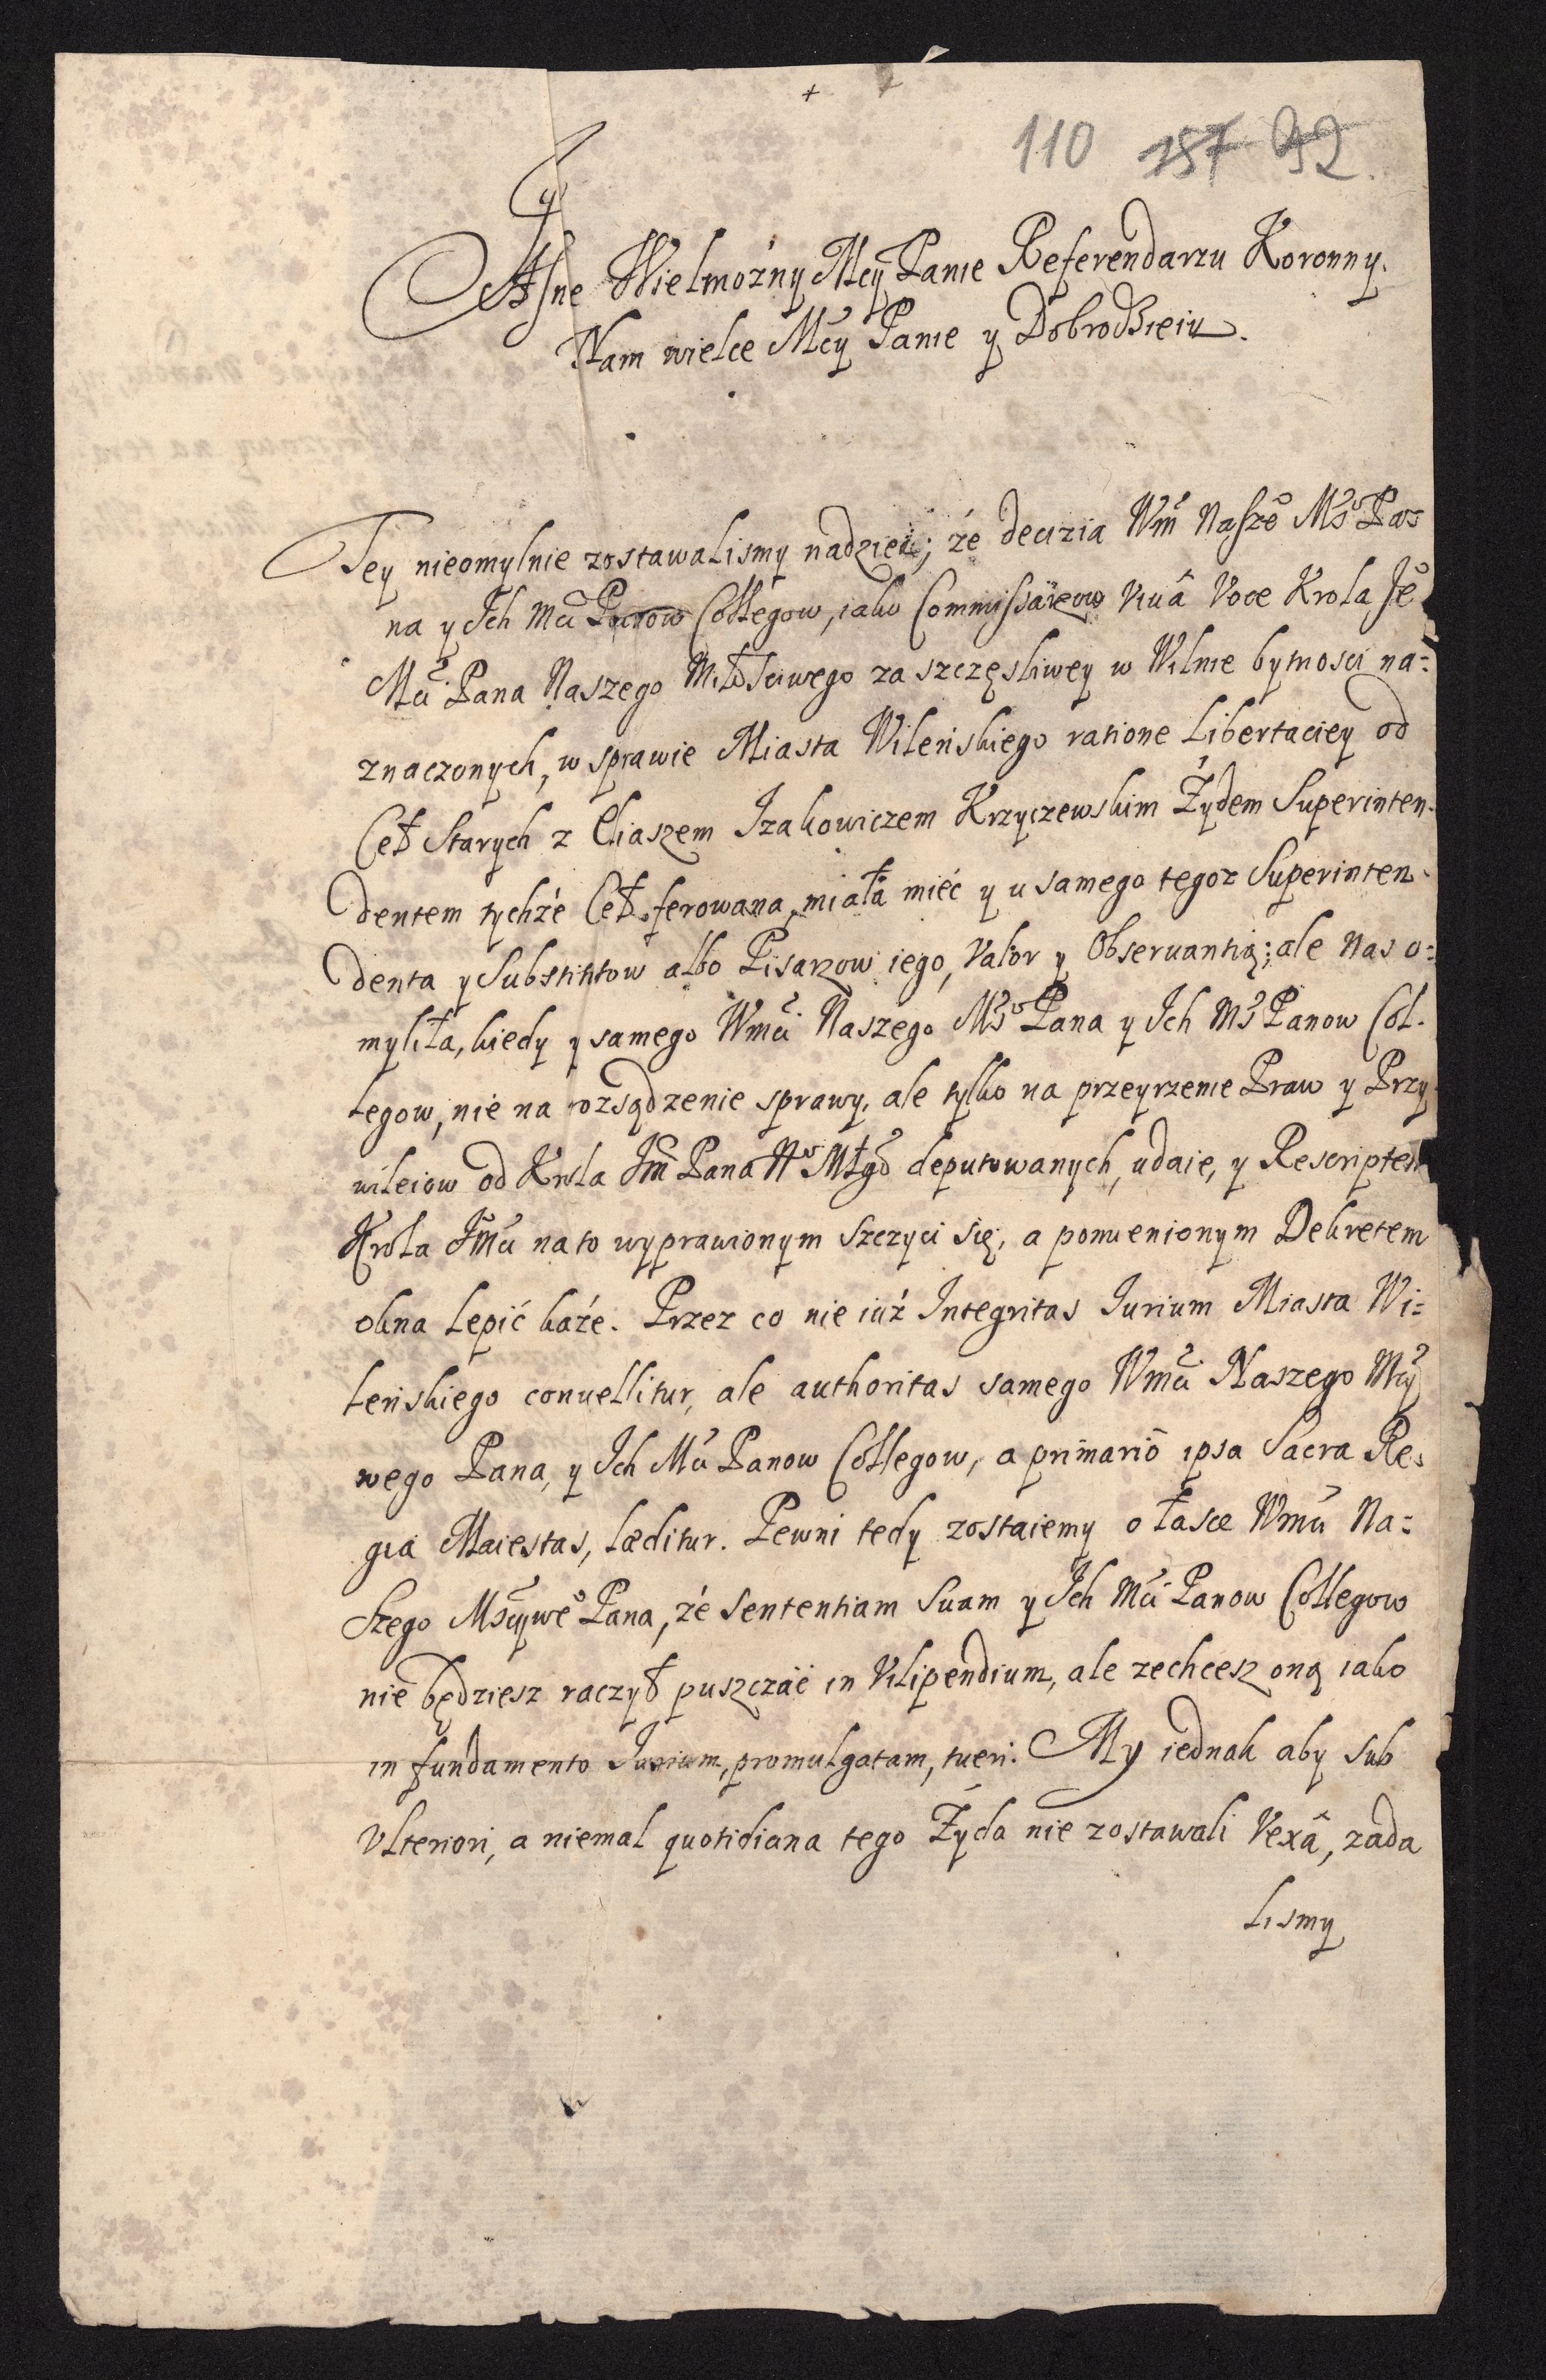 +
110 157 92.
JAsne Wielmożny Mcy Panie Referendarzu Koronny.
Nam wielce Mcy Panie y Dobrodzieiu.
Tey nieomylnie zostawalismy nadziei; że decizia Wm Nasze Ms Pa=
na y Ich Mci Panow Collegow, iako Commissarzow viuâ Voce Krola Je
Mci Pana Naszego Miłosciwego za szczęsliwey w Wilnie bytnosci na=
znaczonych, w sprawie Miasta Wileńskiego ratione Libertaciey od
Ceł Starych z Eliaszem Izakowiczem Krzyczewskim Żydem Superinten=
dentem tychże Ceł ferowana, miała mieć y u samego tegoz Superinten=
denta y Substitutow albo Pisarzow iego, Valor y Observantią; ale nas o=
myliła, kiedy y samego Wmci Naszego Ms Pana y Ich Ms Panow Col=
legow, nie na rozsądzenie sprawy, ale tylko na przeyrzenie Praw y Przy
wileiow od Krola Jm Pana N Młgo deputowanych, udaie, y Rescriptem
Krola Jmci na to wyprawionym szczyci się, a pomienionym Dekretem
okna lepić każe. Przez co nie iuż Integritas Iurium Miasta Wi=
leńskiego convellitur, ale authoritas samego Wmci Naszego Mcy
wego Pana, y Ich Mci Panow Collegow, a primariò ipsa Sacra Re=
gia Maiestas, læditur. Pewni tedy zostaiemy o łasce Wmci Na=
szego Mscywe Pana, że sententiam suam y Ich Mci Panow Collegow
nie będziesz raczył puszczać in Vilipendium, ale zechcesz oną iako
in fundamento Iurium, promulgatam, tueri. My iednak aby sub
Vlteriori, a niemal quotidiana tego Żyda nie zostawali Vexâ, zada
lismy